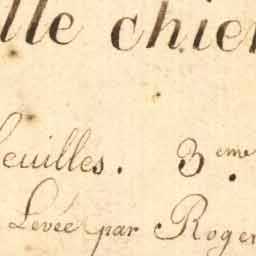 lle chien
feuilles. 3eme
Levée par Roger